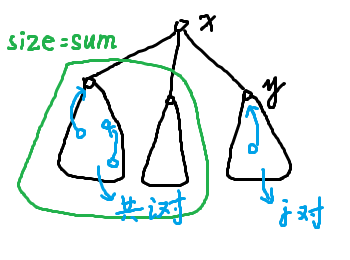 x
size=sum
y
共i对
j对